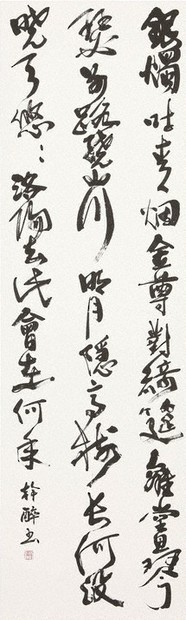 銀燭吐青烟金尊對綺筵離堂思琴
瑟別路繞山川明月隱高樹長河沒
曉天悠〻洛陽去此會在何年